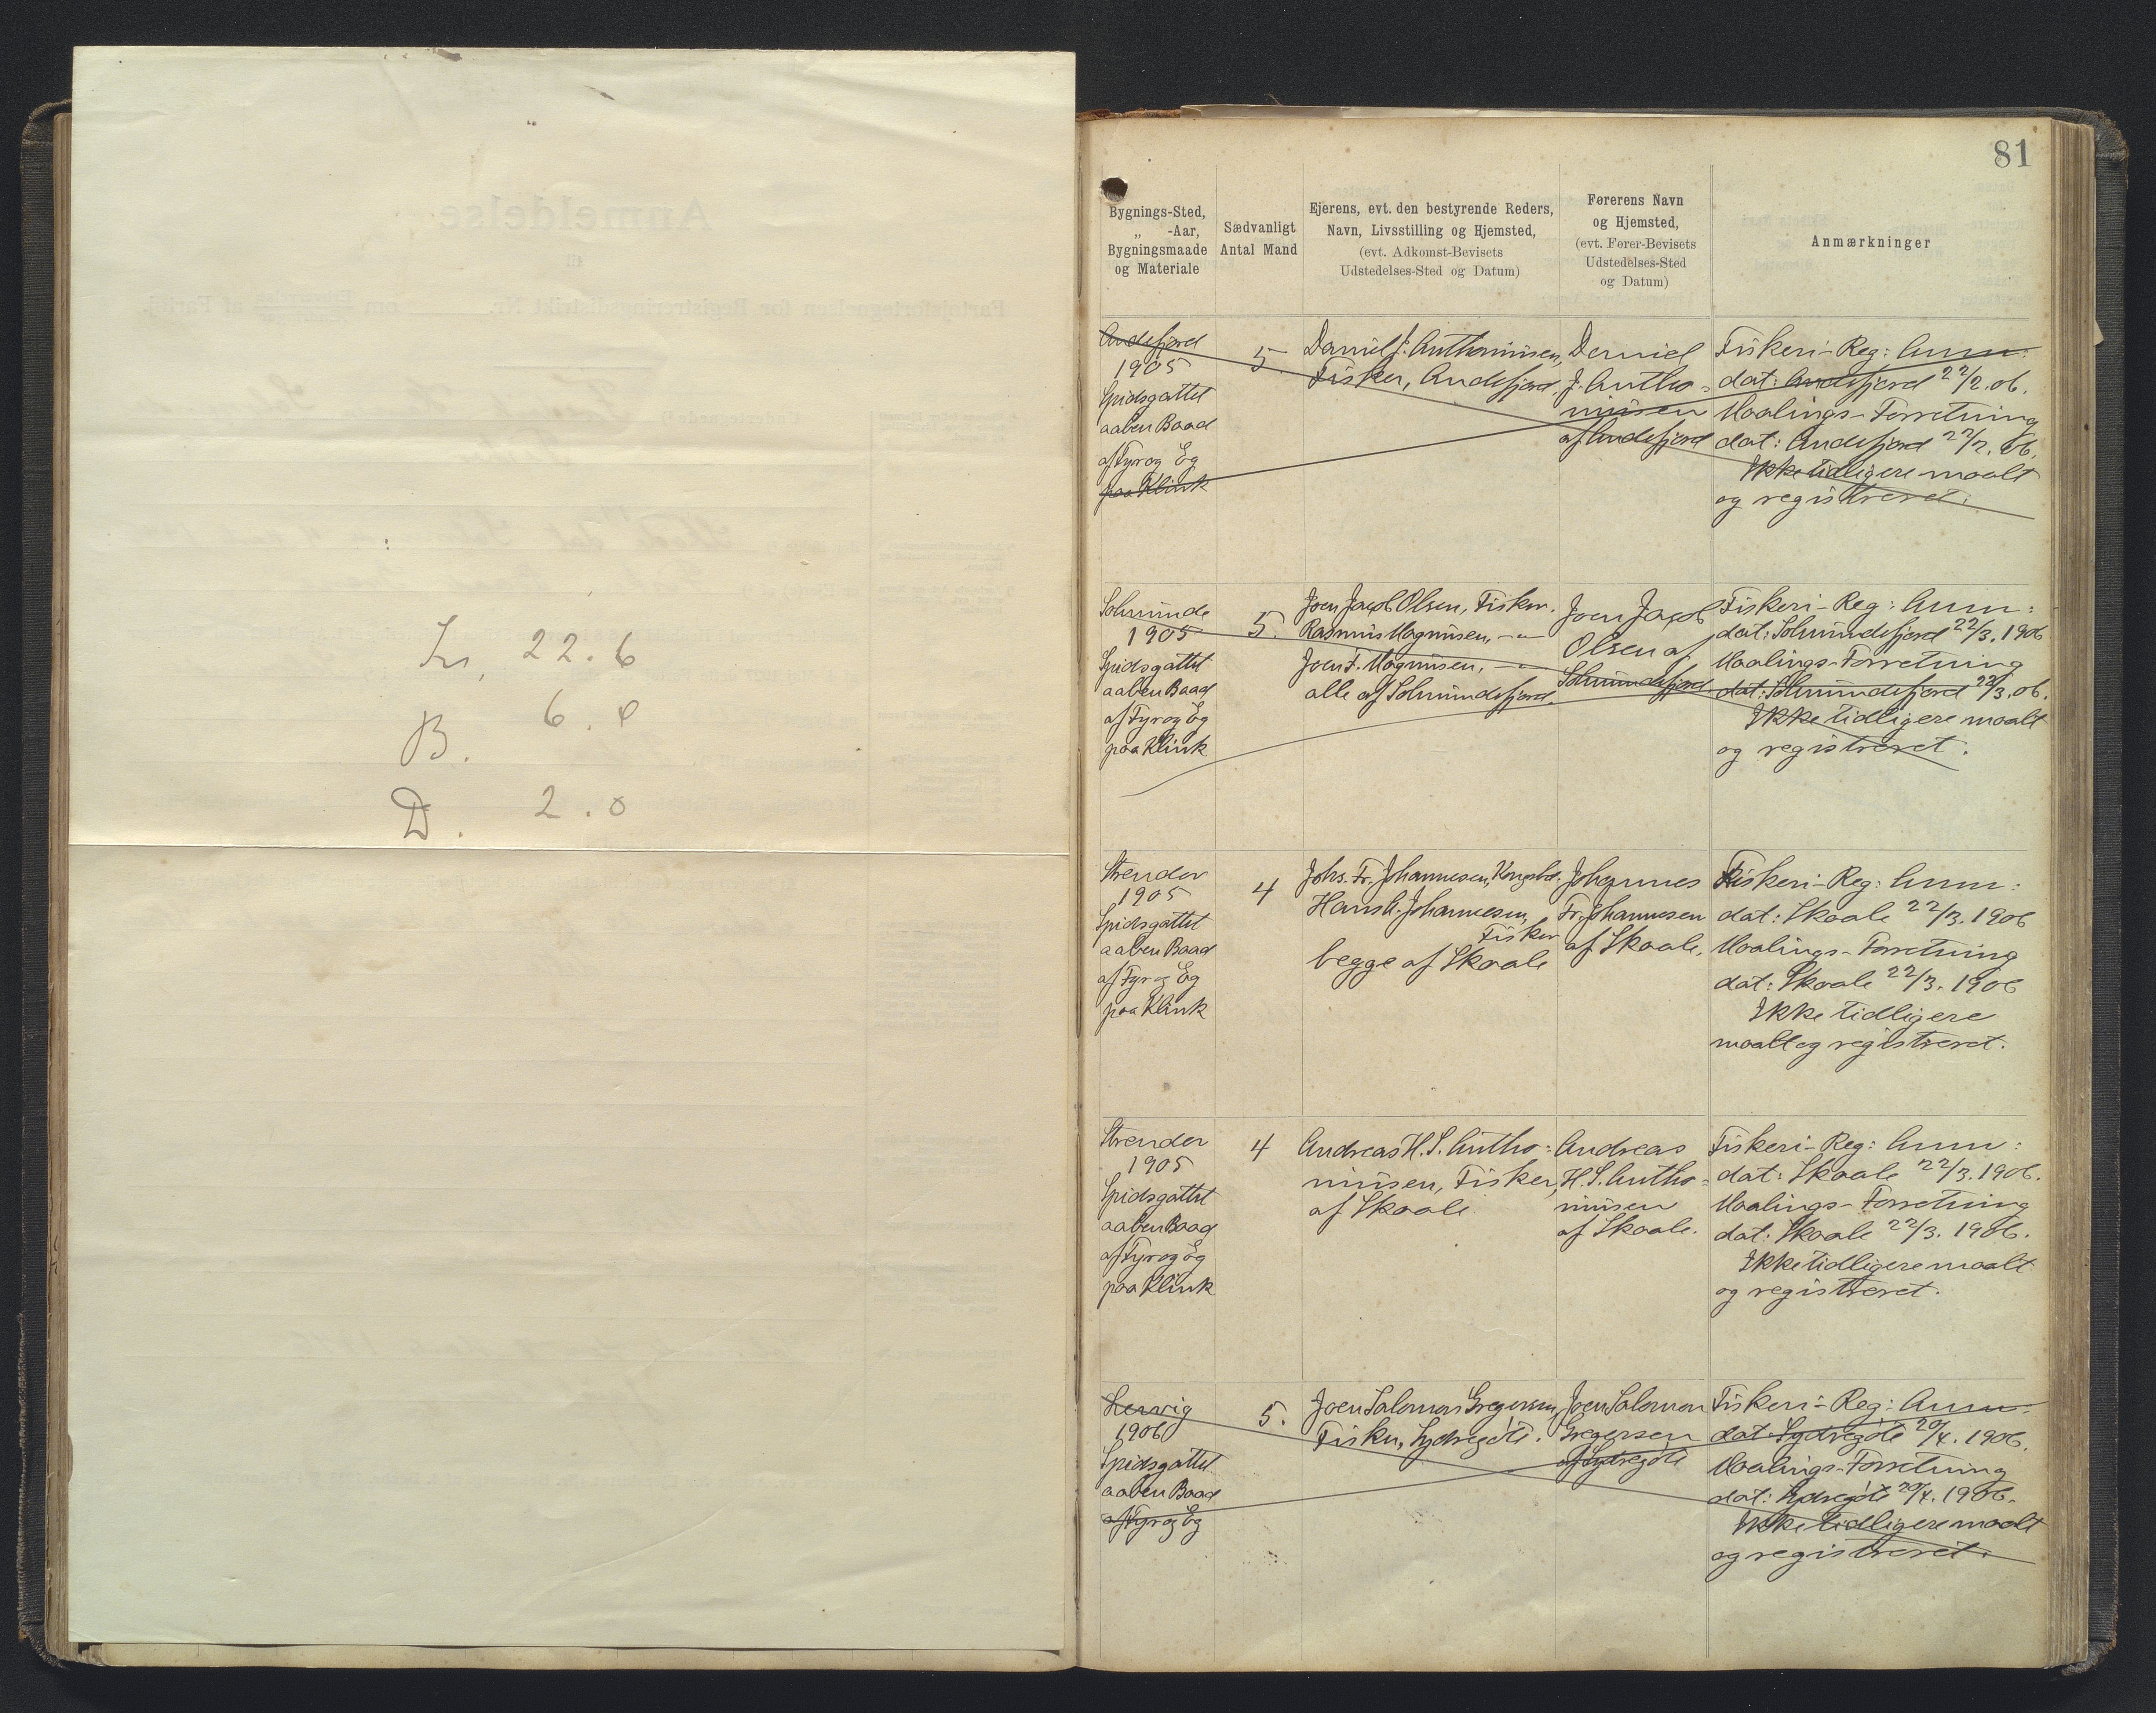 L, 22.6
B. 6.8
D. 2.0
81
Bygnings-Sted,
„ -Aar,
Bygningsmaade
og Materiale
Sædvanligt
Antal Mand
Ejerens, evt. den bestyrende Reders,
Navn, Livsstilling og Hjemsted,
(evt. Adkomst-Bevisets
Udstedelses-Sted og Datum)
Førerens Navn
og Hjemsted,
(evt. Fører-Bevisets
Udstedelses-Sted
og Datum)
Anmærkninger
Andefjord
1905
Spidsgattet
aaben Baad
af Fyr og Eg
paa Klink
5.
Daniel J. Anthoniussen,
Fisker, Andefjord.
Daniel
J. Antho=
niusen
af Andefjord
Fiskeri-Reg: Anm:
dat: Andefjord 22/2. 06.
Maalings-Forretning
dat: Andefjord 22/2. 06.
Ikke tidligere maalt
og registreret.
Solmunde
1905
Spidsgattet
aaben Baad
af Fyr og Eg
paa Klink
5.
Joen Jacob Olsen, Fisker.
Rasmus Magnusen, —"—
Joen F. Magnusen, —"—
alle af Solmundefjord.
Joen Jacob
Olsen af
Solmundefjord.
Fiskeri-Reg: Anm:
dat: Solmundefjord 22/3. 1906
Maalings-Forretning
dat: Solmundefjord 22/3. 06.
Ikke tidligere maalt
og registreret.
Strender
1905
Spidsgattet
aaben Baad
af Fyr og Eg
paa Klink
4
Johs. Fr. Johannesen, Kongsbd.
Hans A. Johannesen,
Fisker
begge af Skaale
Johannes
Fr. Johannesen
af Skaale.
Fiskeri-Reg: Anm:
dat: Skaale 22/3. 1906
Maalings-Forretning
dat: Skaale 22/3. 1906
Ikke tidligere
maalt og registreret.
Strender
1905
Spidsgattet
aaben Baad
af Fyr og Eg
paa Klink
4
Andreas H. S. Antho=
niusen, Fisker,
af Skaale
Andreas
H. S. Antho=
niusen
af Skaale.
Fiskeri-Reg: Anm:
dat: Skaale 22/3. 1906.
Maalings-Forretning
dat: Skaale 22/3. 1906.
Ikke tidligere maalt
og registreret.
Lervig
1906
Spidsgattet
aaben Baad
af Fyr og Eg
5.
Joen Salomon Gregersen,
Fisker, Sydregöte.
Joen Salomon
Gregersen
af Sydregöte
Fiskeri-Reg: Anm:
dat: Sydregöte 20/4. 1906.
Maalings-Forretning
dat: Sydregöte 20/4. 1906.
Ikke tidligere maalt
og registreret.